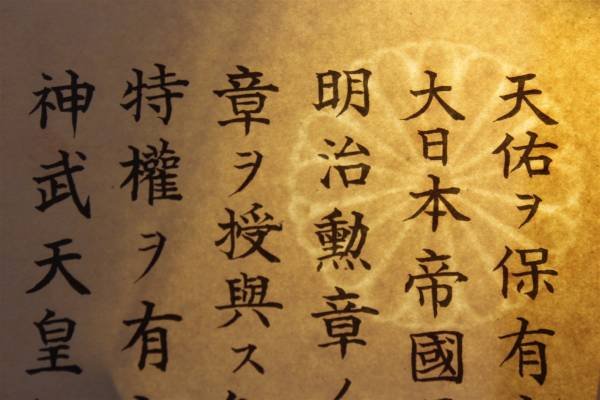 天佑ヲ保有
大日本帝國
明治勲章ノ
章ヲ授與ス
特權ヲ有
神武天皇